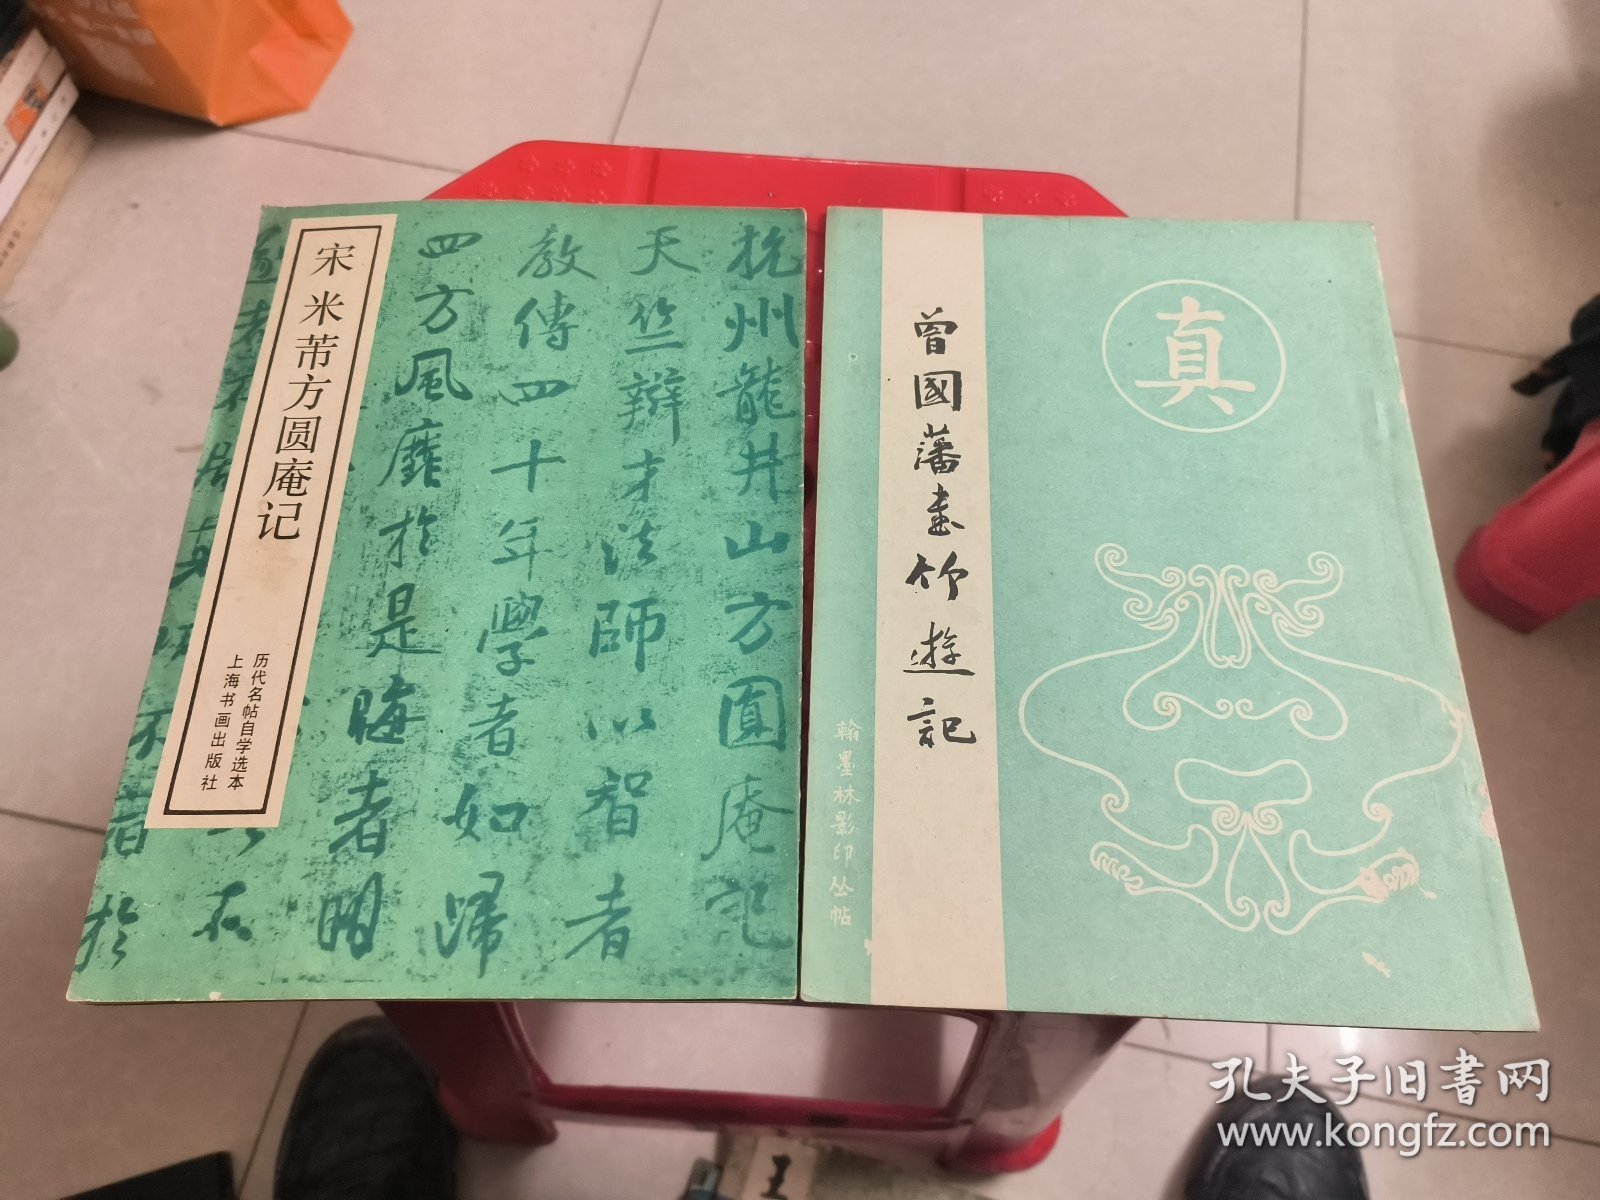 宋 米芾方圆庵记
历代名帖自学选本
上海书画出版社
杭州龍井山方圓庵記
天竺辯才法師以智者
教傳四十年學者如歸
四方風靡於是晦者明
真
曾國藩書竹遊記
翰墨林影印丛帖
孔夫子旧书网
www.kongfz.com